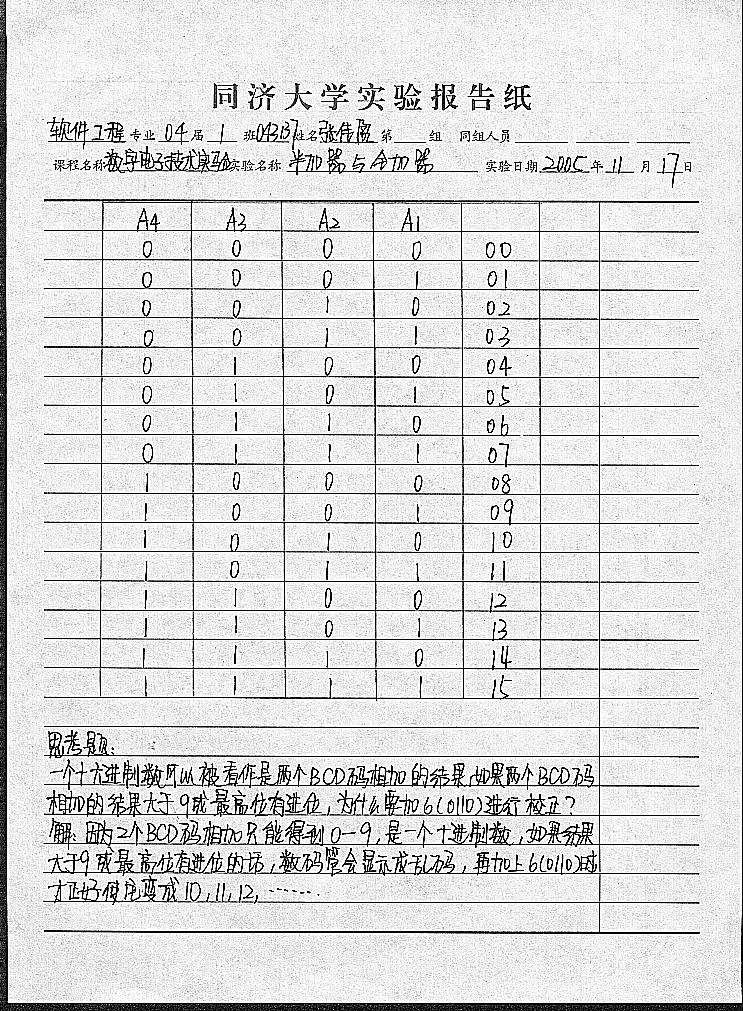 同济大学实验报告纸
软件工程专业 04 届 1 班 043137 姓名 张 第 组 同组人员
课程名称 数字电子技术实验 实验名称 半加器与全加器 实验日期 2005 年 11 月 17 日
A4 A3 A2 A1
0 0 0 0 00
0 0 0 1 01
0 0 1 0 02
0 0 1 1 03
0 1 0 0 04
0 1 0 1 05
0 1 1 0 06
0 1 1 1 07
1 0 0 0 08
1 0 0 1 09
1 0 1 0 10
1 0 1 1 11
1 1 0 0 12
1 1 0 1 13
1 1 1 0 14
1 1 1 1 15
思考题：
一个十六进制数可以被看作是两个BCD码相加的结果，如果两个BCD码
相加的结果大于9或最高位有进位，为什么要加6(0110)进行校正？
解：因为2个BCD码相加只能得到0—9，是一个十进制数，如果结果
大于9或最高位有进位的话，数码管会显示成乱码，再加上6(0110)时
才正好使它变成10，11，12，……